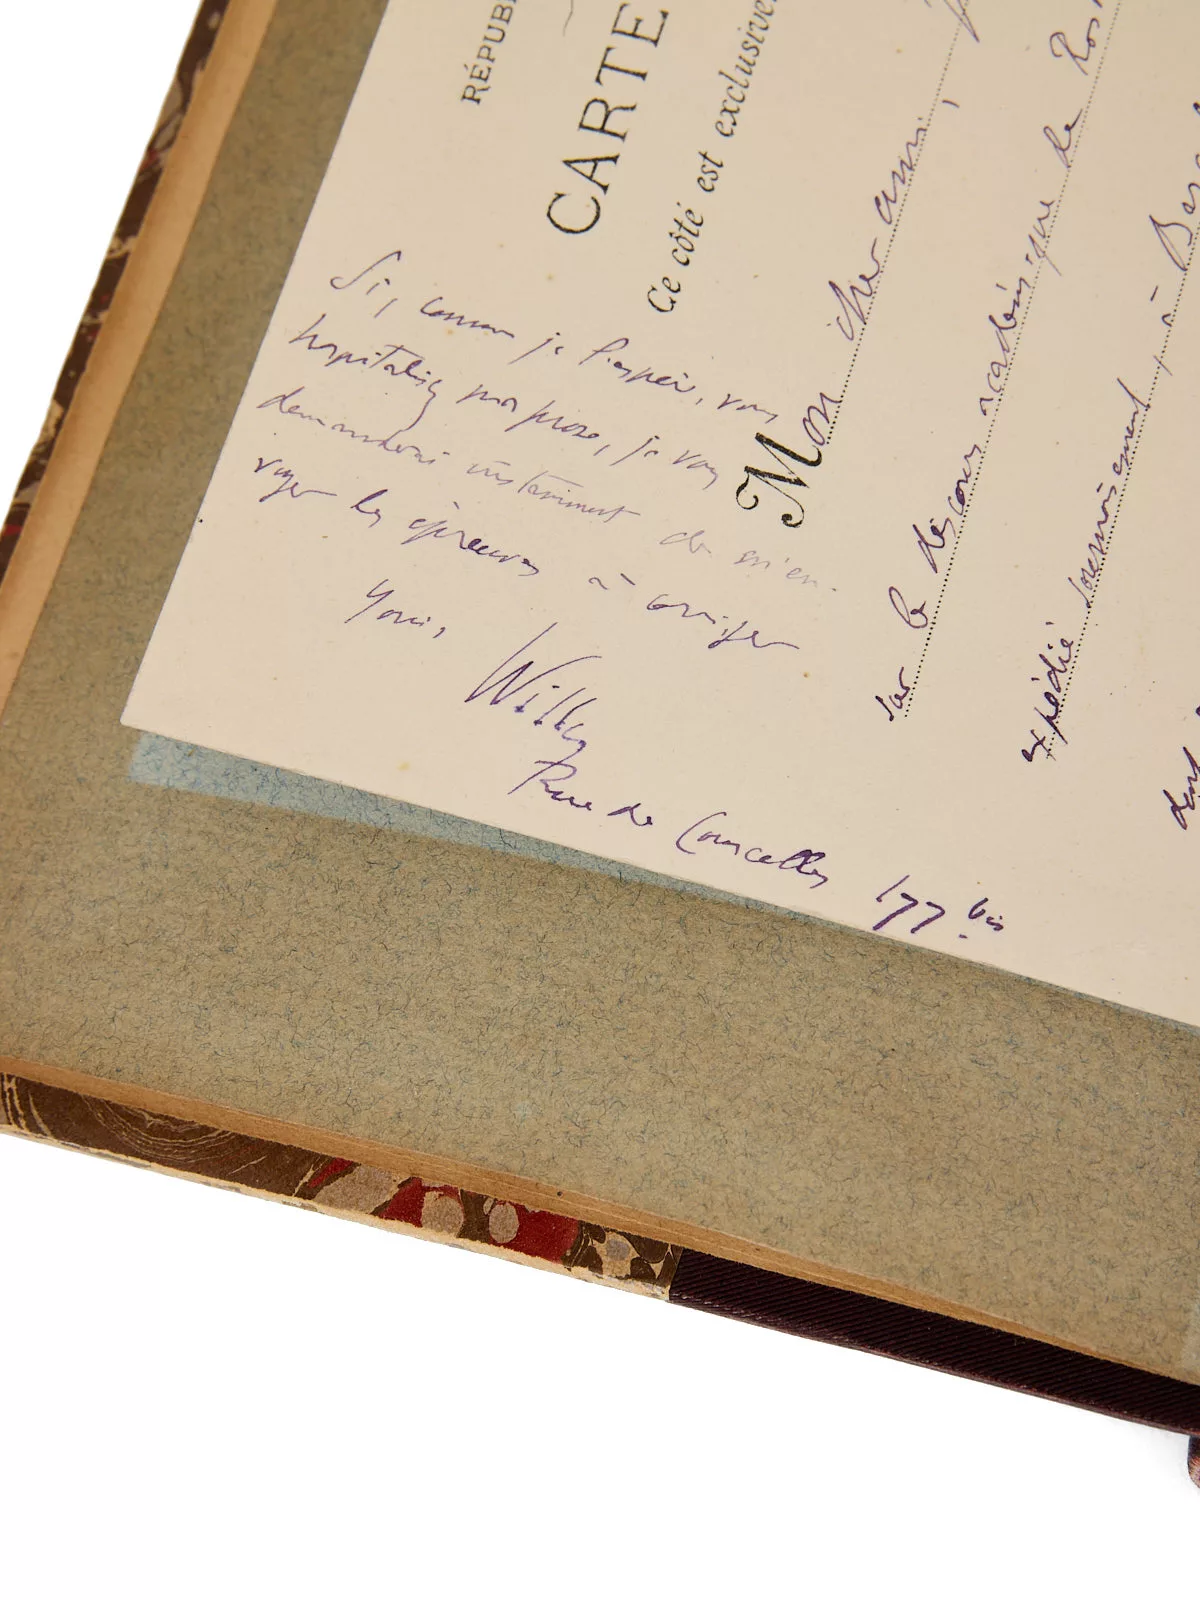 RÉPUB
CARTE
Ce côté est exclusive
Mon cher ami,
sur le discours académique de Ros
expédié sournoisement, à
dont
Si, comme je l'espère, vous
hospitalisez ma prose, je vous
demanderai instamment de m'en-
voyer les épreuves à corriger
Votre,
Willy
Rue de Courcelles 177 bis